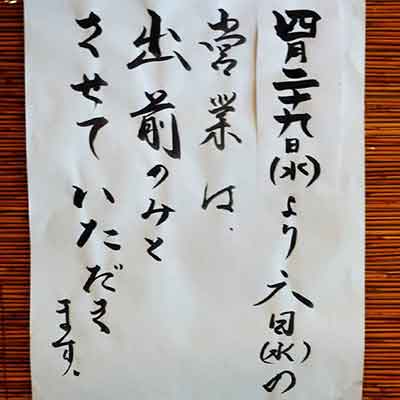 四月二十九日(水)より六日(水)の
営業は、
出前のみと
させていただき
ます。